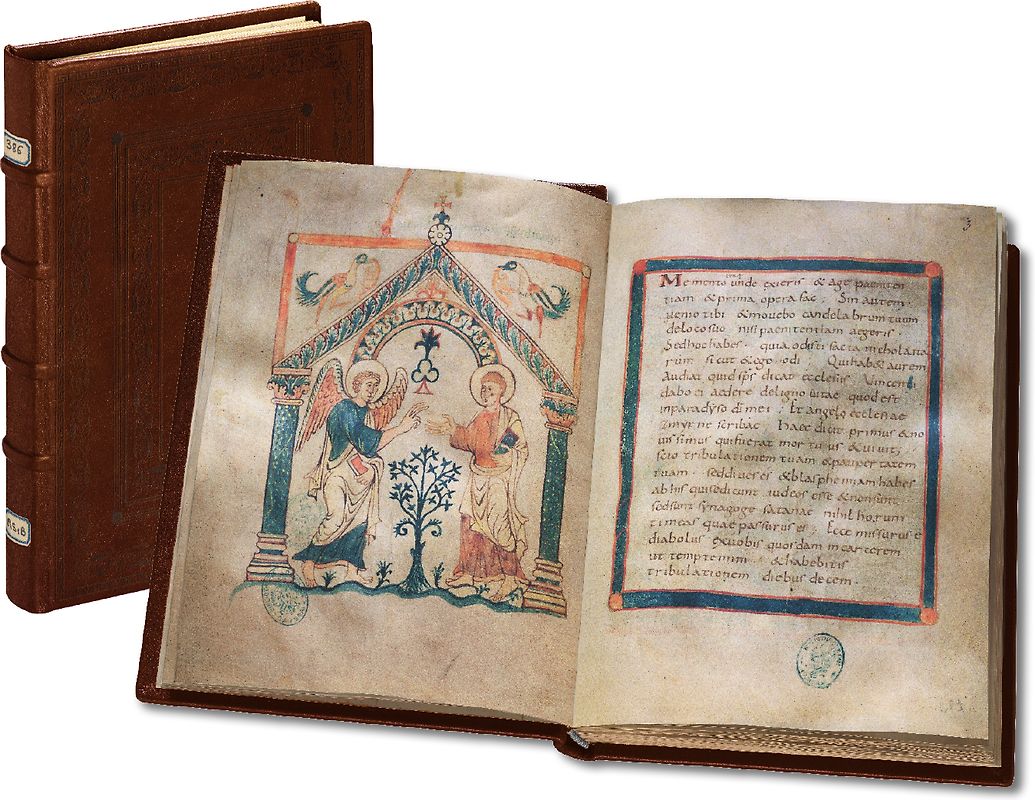 386
MS.B
3
Memento unde exieris & age paeniten
tiam & prima opera fac; Sin autem
uenio tibi & mouebo candelabrum tuum
de loco suo nisi paenitentiam aegeris.
Sed hoc habes quia odisti facta nicholaita
rum sicut & ego odi. Qui hab& aurem
audiat quid sps dicat ecclesiis. Vincenti
dabo ei aedere de ligno uitae quod est
in paradyso di mei; Et angelo ecclesiae
zmyrne scribae; Haec dicit primus & no
uissimus qui fuerat mortuus & uiuit;
scio tribulationem tuam & paupertatem
tuam sed diues es & blasphemiam habes
ab his qui se dicunt iudeos esse & non sunt
sed sunt synagoge satanae nihil horum
timeas quae passurus es; Ecce missurus e
diabolus ex uobis quosdam in carcerem
ut temptemini & habebitis
tribulationem diebus decem.